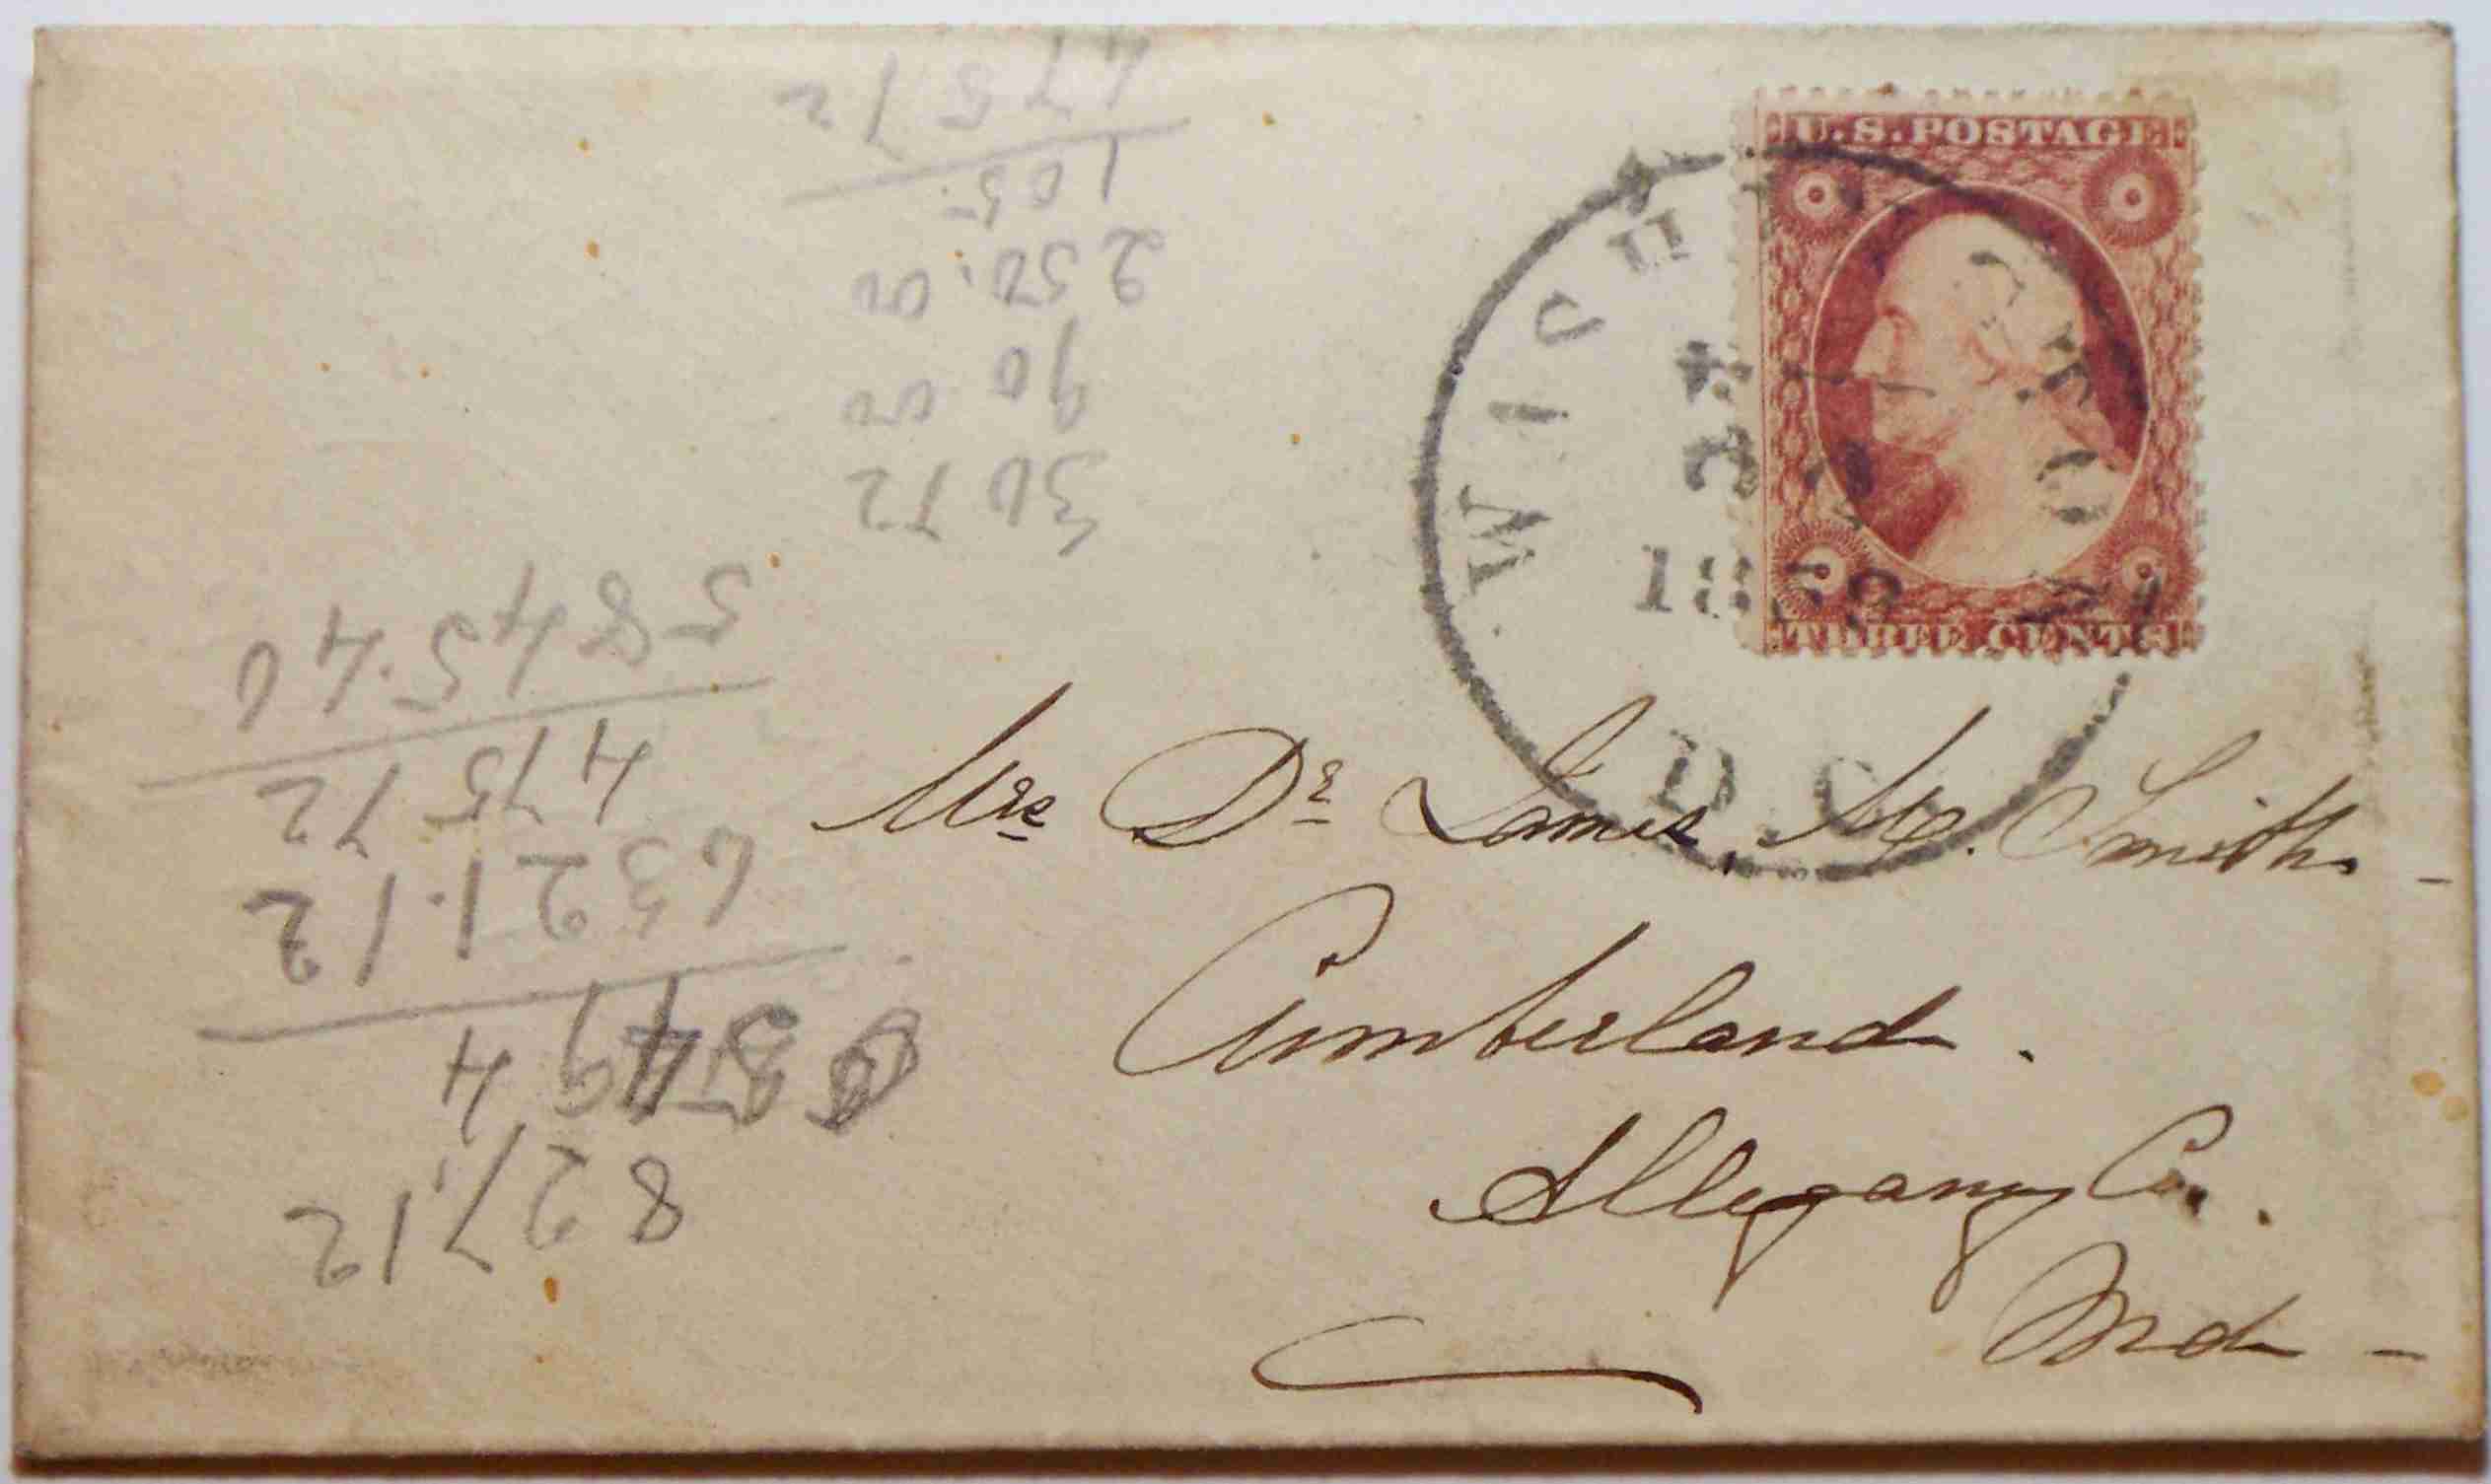 U.S. POSTAGE
THREE CENTS
WASHINGTON
D.C.
Mrs Dr James Smith -
Cumberland.
Allegany Co.
Md -
827,12
5494
6321.12
475 72
5845.40
30 72
90 00
250.00
105.
475 72